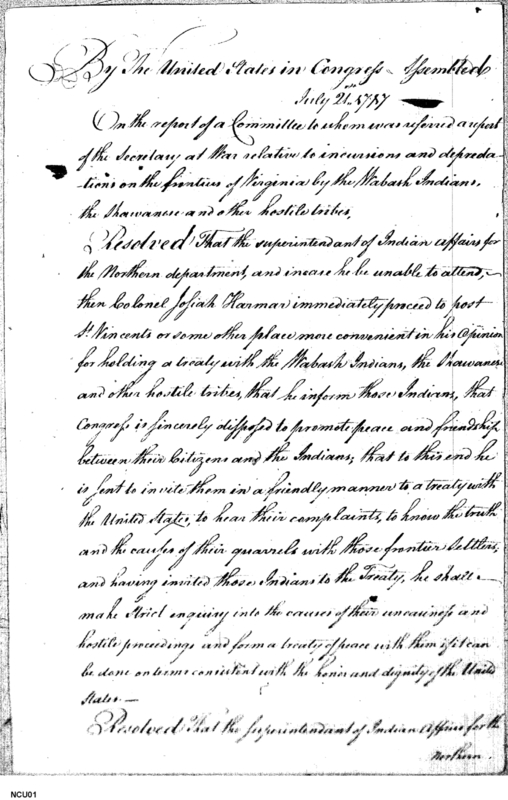 By The United States in Congress Assembled
July 21st 1787
On the report of a Committee to whom was referred a report
of the Secretary at War relative to incursions and depreda-
tions on the frontiers of Virginia by the Wabash Indians,
the Shawanese and other hostile tribes,
Resolved That the superintendant of Indian affairs for
the Northern department, and incase he be unable to attend,
then Colonel Josiah Harmar immediately proceed to post
St. Vincents or some other place more convenient in his Opinion
for holding a treaty with the Wabash Indians, the Shawanese
and other hostile tribes, that he inform those Indians, that
Congress is sincerely disposed to promote peace and friendship
between their Citizens and the Indians; that to this end he
is sent to invite them in a friendly manner to a treaty with
the United States, to hear their complaints, to know the truth
and the causes of their quarrels with those frontier Settlers,
and having invited those Indians to the Treaty, he shall
make Strict enquiry into the causes of their uneasiness and
hostile proceedings and form a treaty of peace with them if it can
be done on terms consistent with the honor and dignity of the United
States.—
Resolved That the Superintendant of Indian Affairs for the
Northern
NCU01